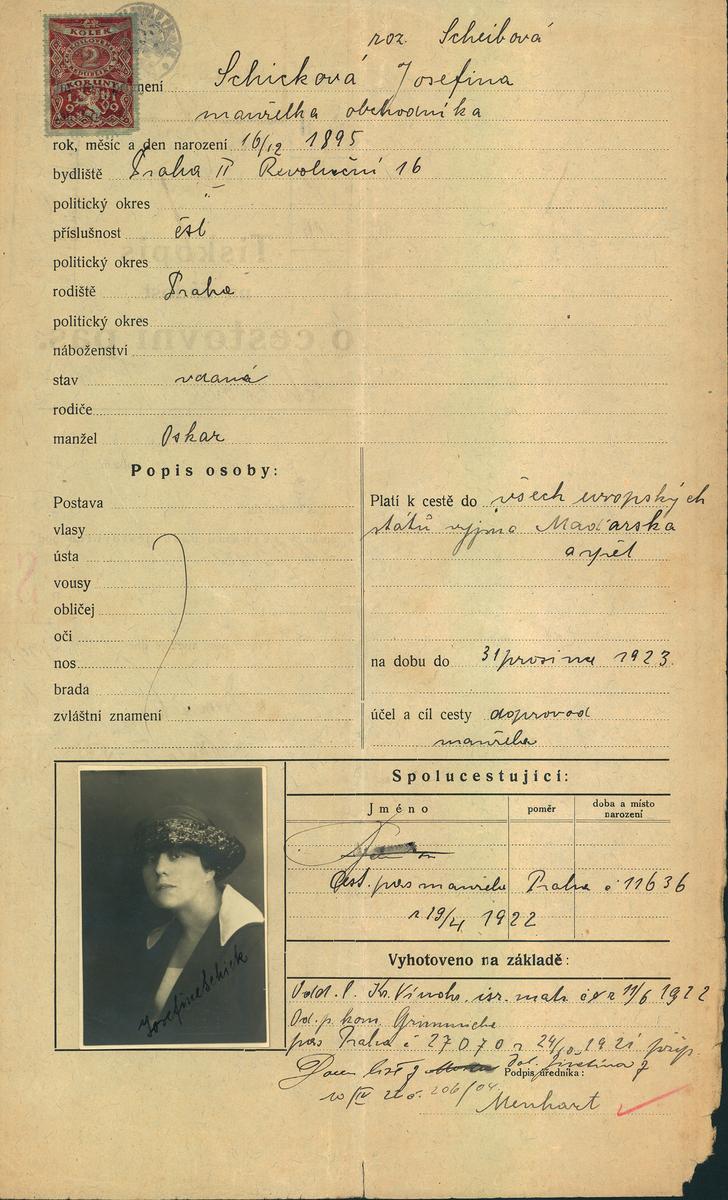 roz. Scheibová
KOLEK
2
KORUNY
1919
Schicková Josefina
manželka obchodníka
rok, měsíc a den narození 16/12 1895
bydliště Praha II Revoluční 16
politický okres
příslušnost čsl
politický okres
rodiště Praha
politický okres
náboženství
stav vdaná
rodiče
manžel Oskar
Popis osoby:
Postava
vlasy
ústa
vousy
obličej
oči
nos
brada
zvláštní znamení
Platí k cestě do všech evropských
států vyjma Maďarska
a zpět
na dobu do 31 prosince 1923.
účel a cíl cesty doprovod
manžela
Josefine Schick
Spolucestující:
Jméno poměr doba a místo
narození
Cest. pas manžela Praha č 11636
z 19/4 1922
Vyhotoveno na základě:
Odd. l. Kr. Vinohr. isr. mat. 11/6 1922
Od. p. kom.
pas Praha č 27070 z 1921
Dom. list
Podpis úředníka:
206/04
Menhart